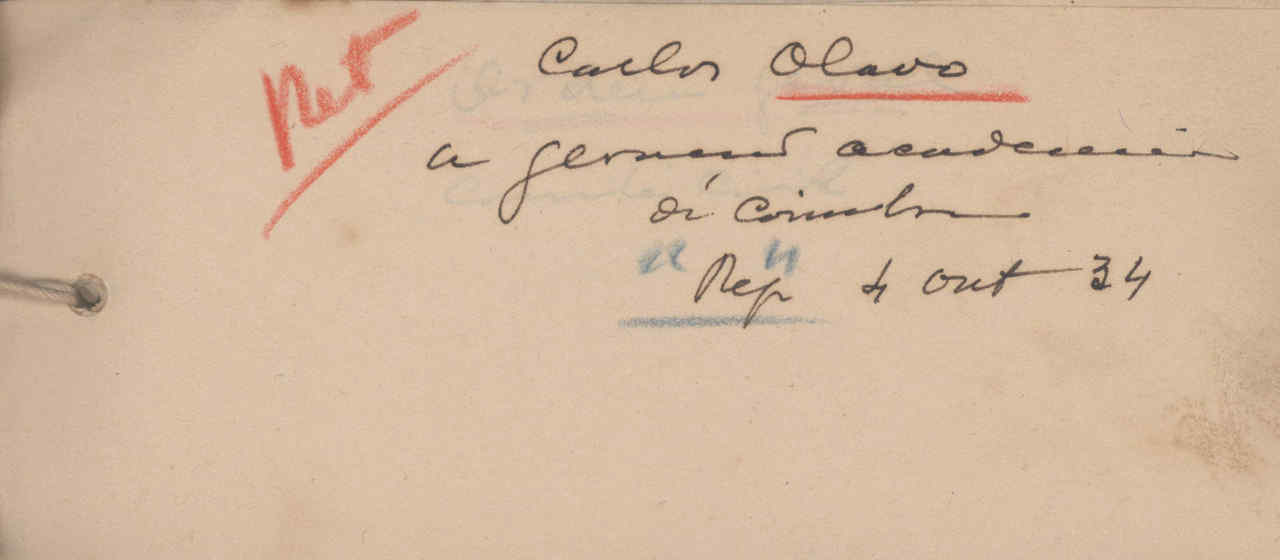 Ret
Carlos Olavo
a academia
de Coimbra
" Rep " 4 out 34